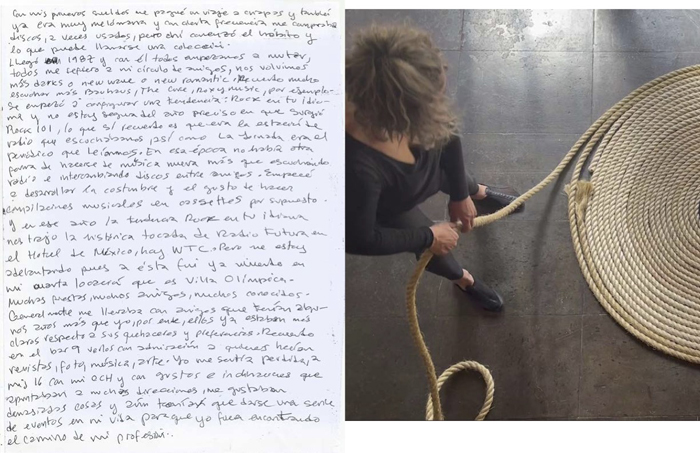 Con mis primeros sueldos me pagué un viaje a Europa y también
ya era muy melómana y con cierta frecuencia me compraba
discos, a veces usados, pero ahí comenzó el hábito y
lo que puede llamarse una colección.
Llegó 1987 y con él todos empezamos a mutar,
todos me refiero a mi círculo de amigos, nos volvimos
más darks o new wave o new romantic. Recuerdo mucho
escuchar más Bauhaus, The Cure, Roxy music, por ejemplo.
Se empezó a configurar una tendencia: Rock en tu Idio-
ma y no estoy segura del año preciso en que surgió
Rock 101, lo que sí recuerdo es que era la estación de
radio que escuchábamos, así como La Jornada era el
periódico que leíamos. En esa época no había otra
forma de hacerse de música nueva más que escuchando
radio e intercambiando discos entre amigos. Empecé
a desarrollar la costumbre y el gusto de hacer
compilaciones musicales en cassettes por supuesto.
Y en ese año la tendencia Rock en tu Idioma
nos trajo la histórica tocada de Radio Futura en
el Hotel de México, hoy WTC. Pero me estoy
adelantando pues a ésta fui ya viviendo en
mi cuarta locación que es Villa Olímpica.
Muchas fiestas, muchos amigos, muchos conocidos.
Generalmente me llevaba con amigos que tenían algu-
nos años más que yo, por ende, ellos ya estaban más
claros respecto a sus quehaceres y preferencias. Recuerdo
en el bar 9 verlos con admiración a quienes hacían
revistas, foto, música, arte. Yo me sentía perdida, a
mis 16 con mi CCH y con gustos e inclinaciones que
apuntaban a muchas direcciones, me gustaban
demasiadas cosas y aún tenían que darse una serie
de eventos en mi vida para que yo fuera encontrando
el camino de mi profesión.